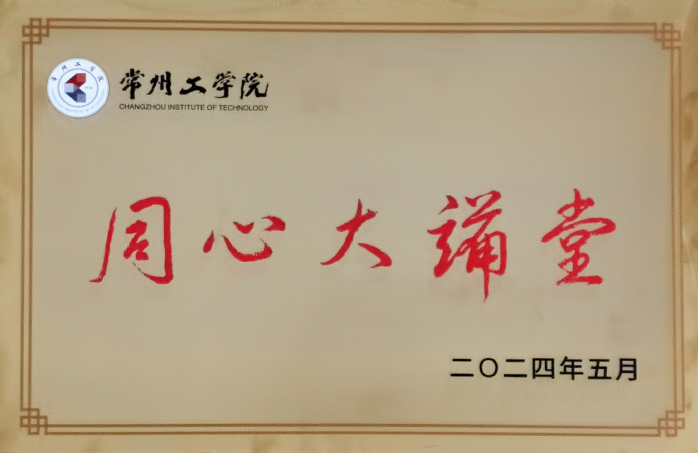 常州工学院
CHANGZHOU INSTITUTE OF TECHNOLOGY
同心大講堂
二〇二四年五月